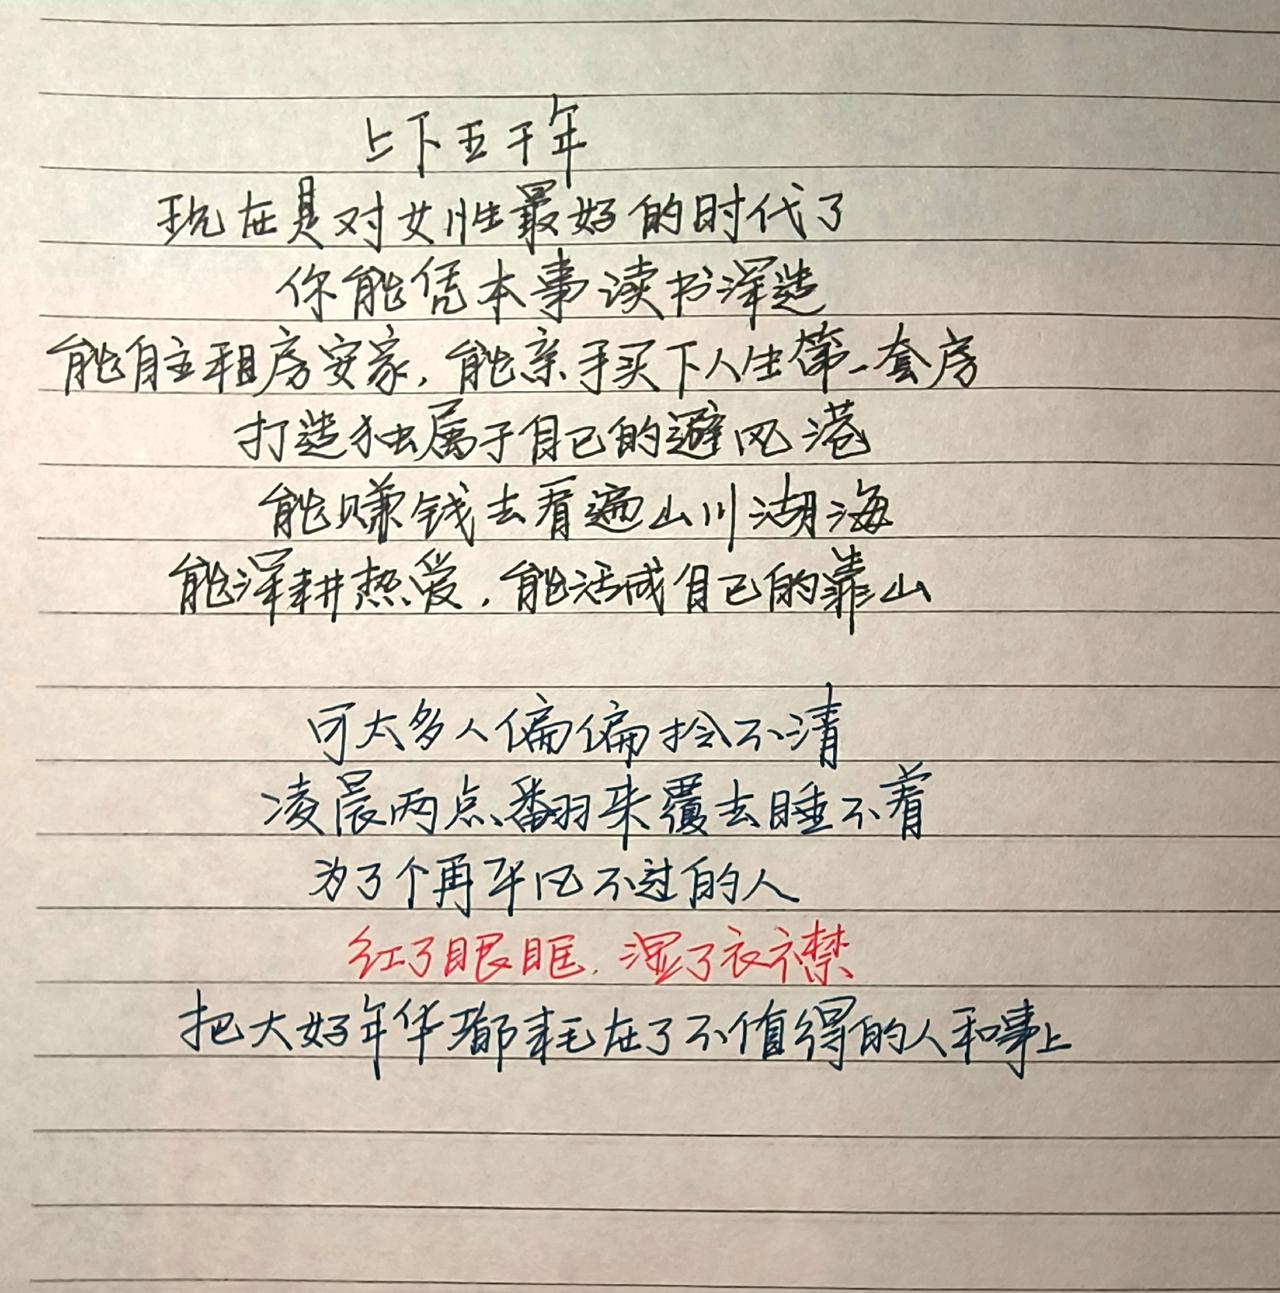 上下五千年
现在是对女性最好的时代了
你能凭本事读书深造
能自主租房安家,能亲手买下人生第一套房
打造独属于自己的避风港
能赚钱去看遍山川湖海
能深耕热爱,能活成自己的靠山
可太多人偏偏拎不清
凌晨两点翻来覆去睡不着
为了个再平凡不过的人
红了眼眶,湿了衣襟
把大好年华都耗在了不值得的人和事上